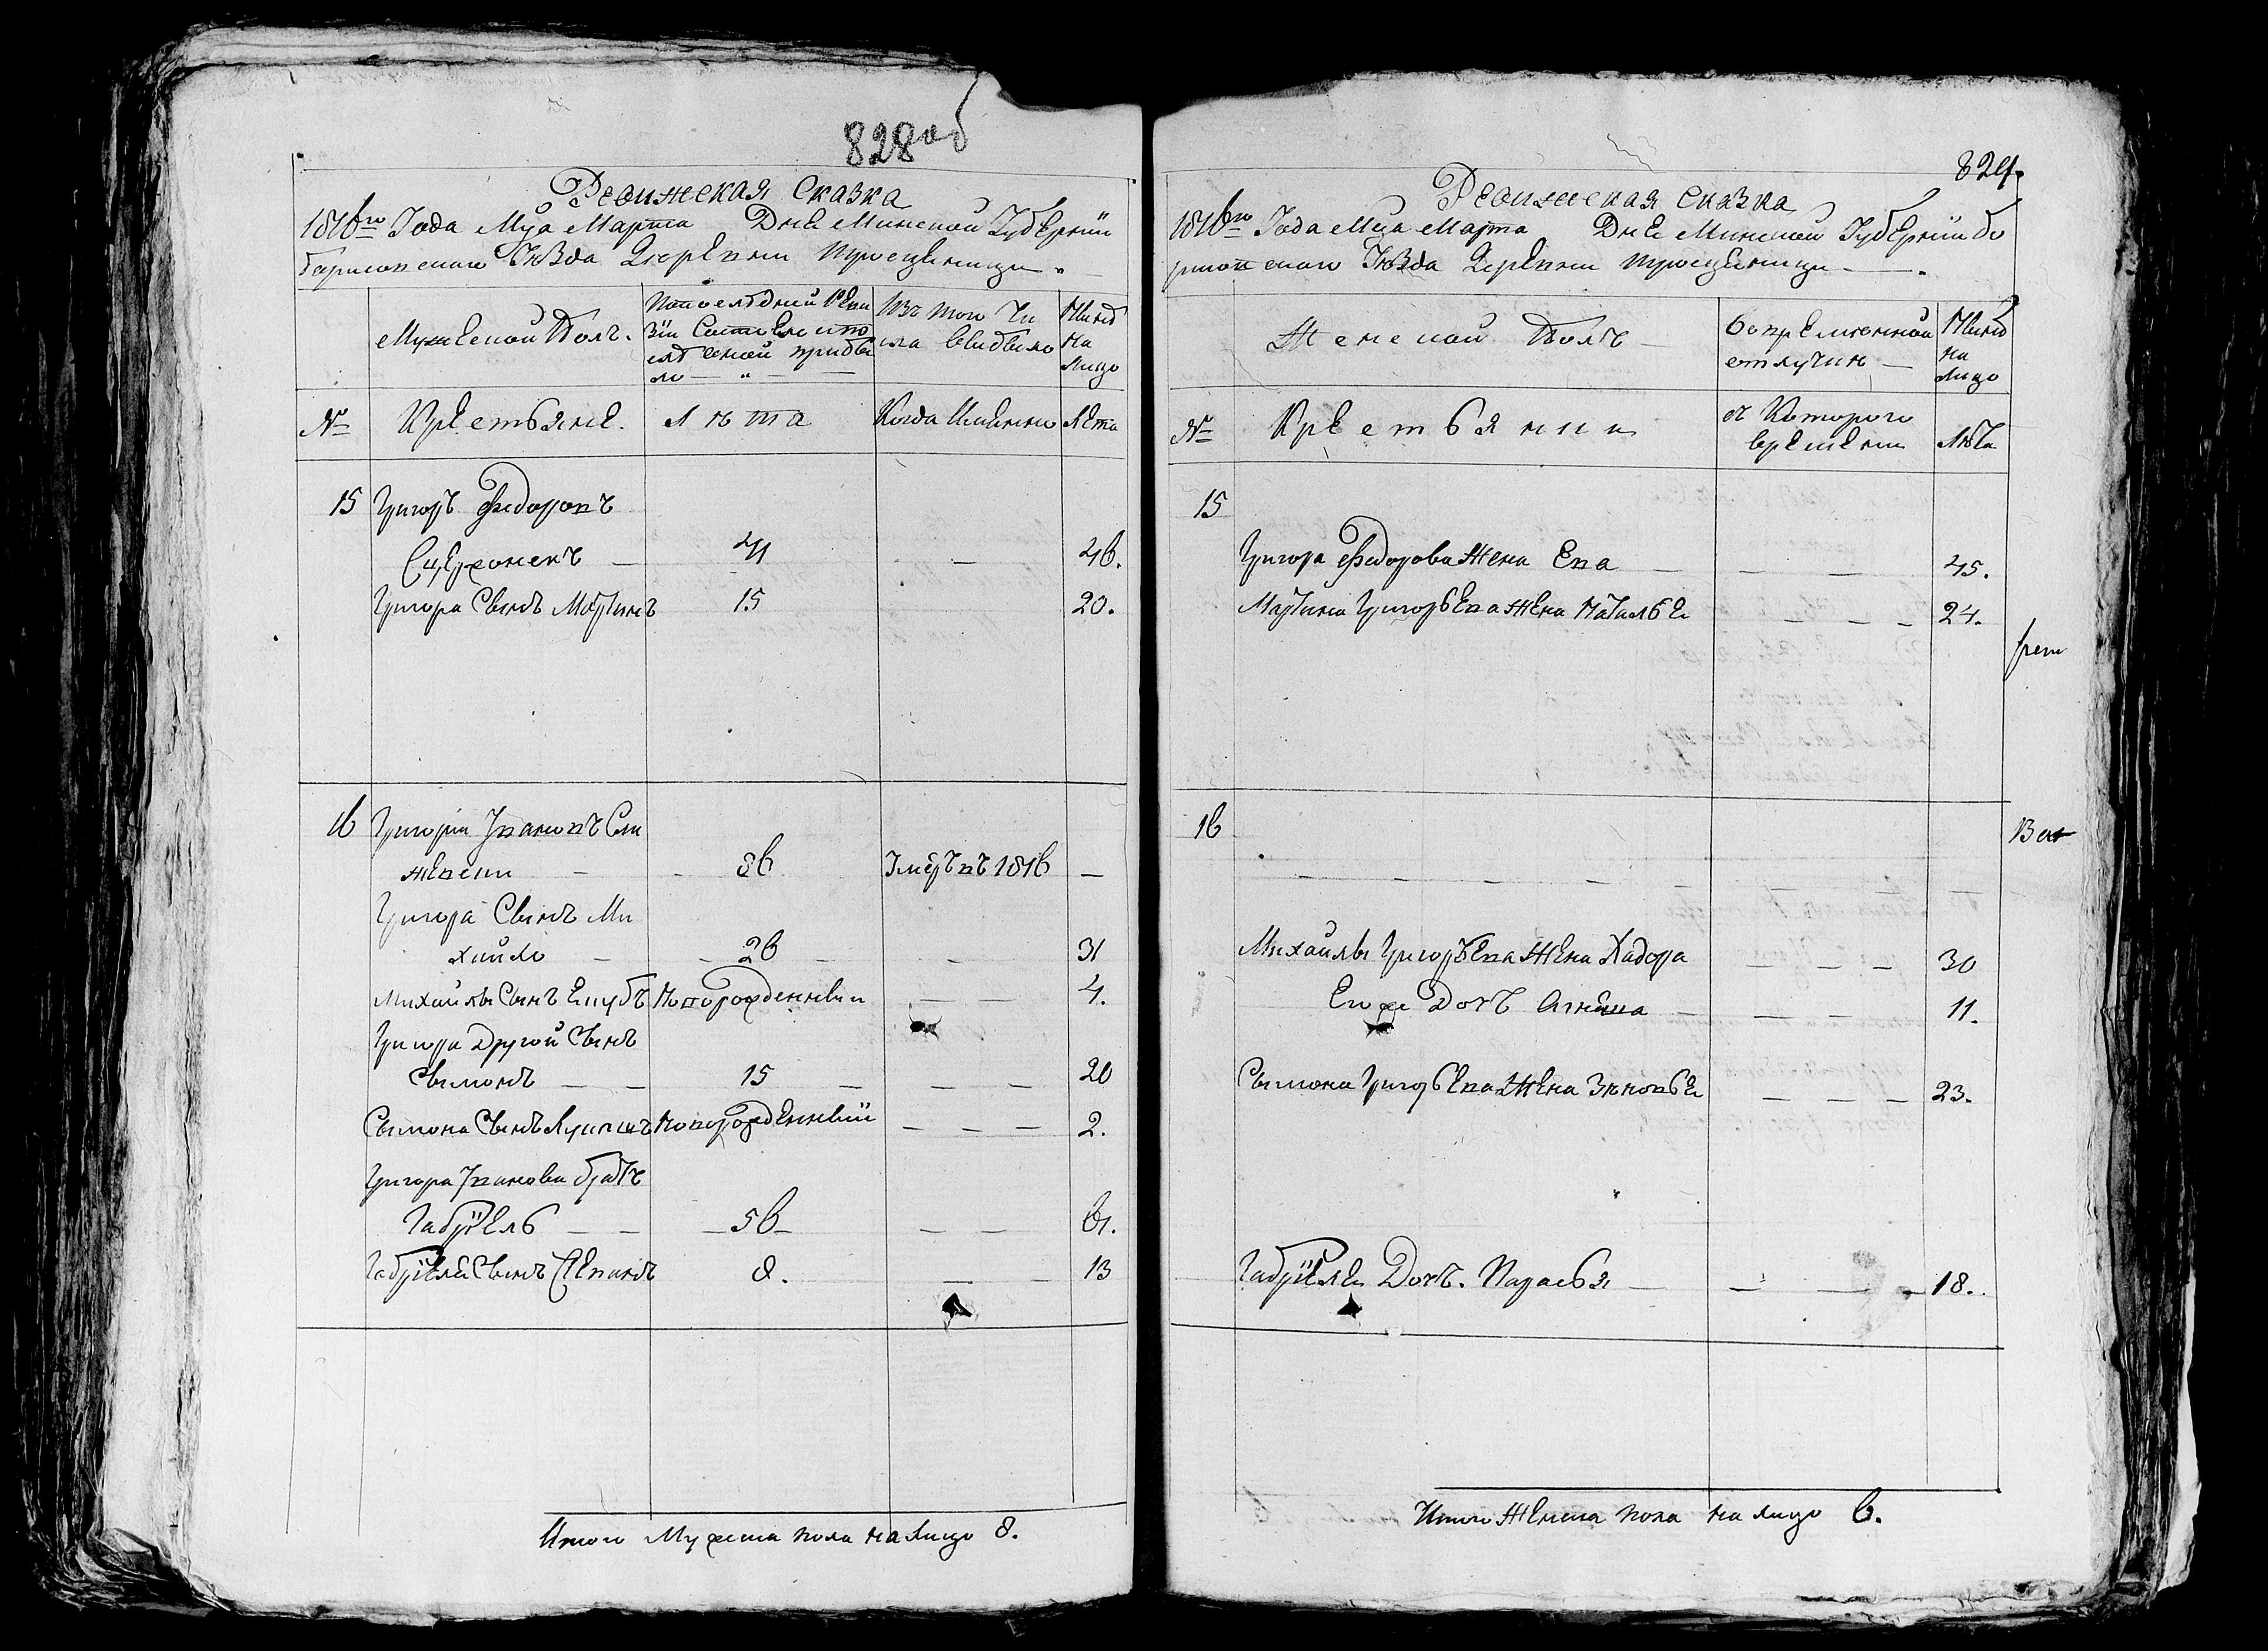 828об
Ревижская Сказка
1816го Года Мца Марта Дня Минской Губернии
борисовского Уезда Деревни Тросценицы
Мужеской Полъ.
По последний Реви
зіи Состояло и по
сле оной прибы
ло
Изъ того Чи
сла выбыло
Ныне
на
лицо
№
Крестьяне.
Лета
Когда Именно
Лета
15 Григоръ Федоровъ
41 46.
Григора Сынъ Мартинъ 15 20.
16 Григорий Ивановъ Сли
жевски 86 Умеръ въ 1816
Григора Сынъ Ми
хайло 26 31
Михайлы Сынъ Якубъ Новорожденный 4.
Григора Другой Сынъ
Сымонъ 15 20
Сымона Сынъ Новорожденный 2.
Григора Иванова братъ
Габріель 56 61.
Габріеля Сынъ Степанъ 8. 13
Итого Мужеска пола на лицо 8.
829.
Ревижская Сказка
1816го Года Мца Марта Дня Минской Губернии бо
рисовского Уезда Деревни Тросценицы
Женской Полъ
Во временной
отлучкѣ
Ныне
на
лицо
№
Крестьянки
съ Которого
времени
Лѣта
15
Григора Федорова Жена Ева 45.
Мартина Григорьева Жена Наталья 24.
16
Михайлы Григорьева Жена Хадора 30
Его же Дочъ Агапа 11.
Сымона Григорьева Жена Зѣновья 23.
Габріеля Дочъ. Парасья 18.
Итого Женска пола на лицо 6.